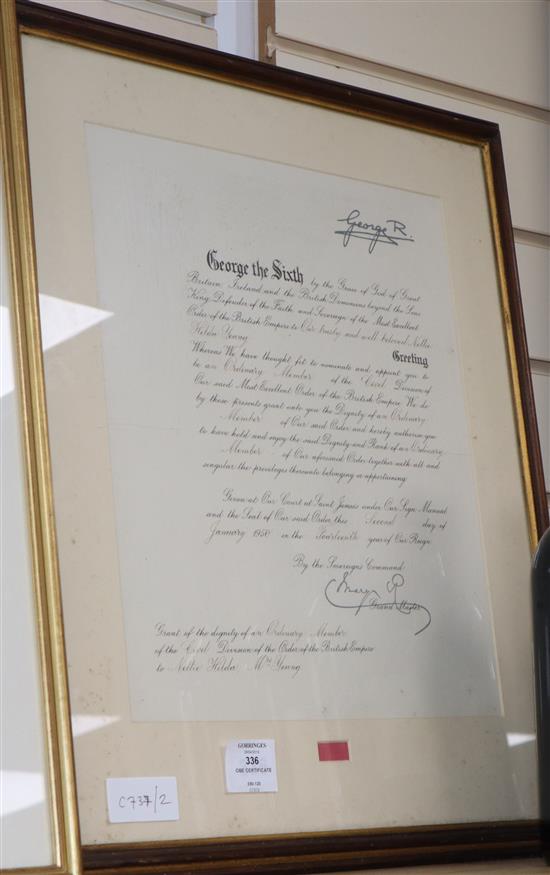 George R.
George the Sixth by the Grace of God of Great
Britain Ireland and the British Dominions beyond the Seas
King, Defender of the Faith and Sovereign of the Most Excellent
Order of the British Empire to Our trusty and well beloved Nellie
Hilda Young
Greeting
Whereas We have thought fit to nominate and appoint you to
be an Ordinary Member of the Civil Division of
Our said Most Excellent Order of the British Empire We do
by these presents grant unto you the Dignity of an Ordinary
Member of Our said Order and hereby authorise you
to have hold and enjoy the said Dignity and Rank of an Ordinary
Member of Our aforesaid Order together with all and
singular the privileges thereunto belonging or appertaining
Given at Our Court at Saint James's under Our Sign Manual
and the Seal of Our said Order this Second day of
January 1950 in the Fourteenth year of Our Reign
By the Sovereign's Command
Mary R
Grand Master
Grant of the dignity of an Ordinary Member
of the Civil Division of the Order of the British Empire
to Nellie Hilda Mrs Young
GORRINGES
336
OBE CERTIFICATE
C737/2